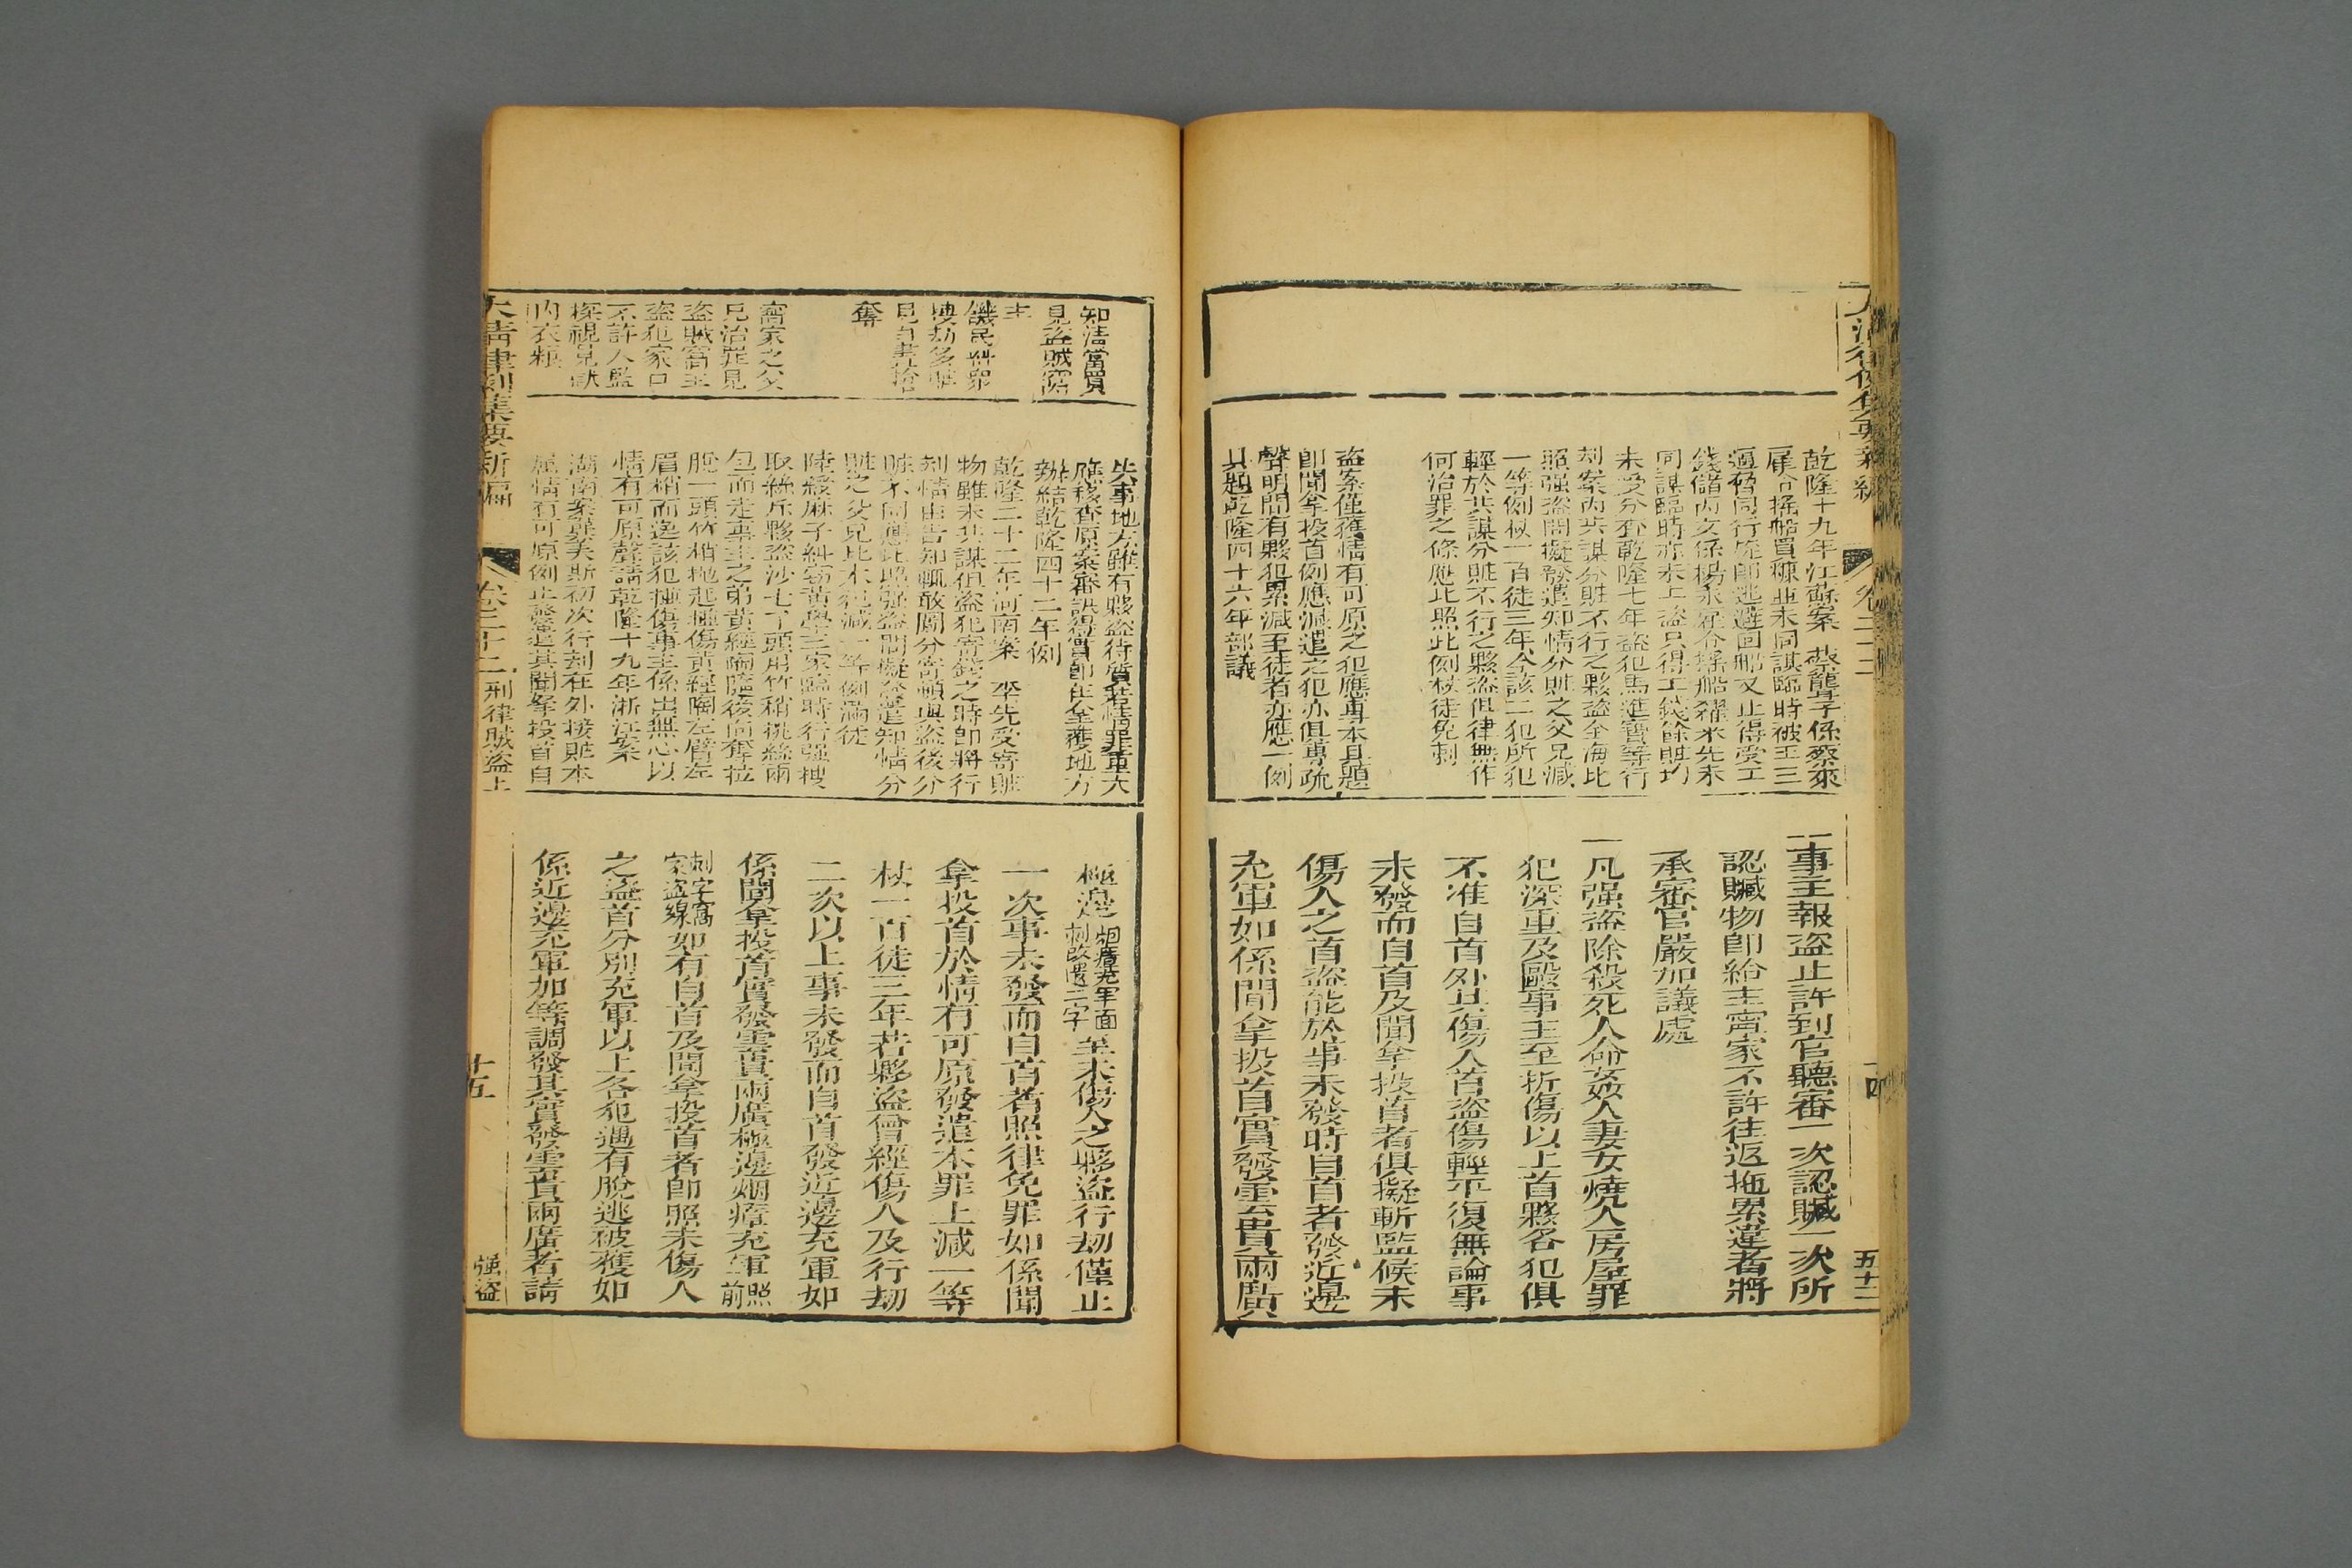 乾隆十九年江蘇案蔡籠子係蔡來
雇令搖船買糠並未同謀臨時被王三
逼脅同行旋即逃避回船又止得受工
錢儲丙文係楊永雇令搖船糴米先未
同謀臨時亦未上盜只得工錢餘賍均
未受分查乾隆七年盜犯馬進寶等行
刼案內共謀分賍不行之夥盜全海比
照强盜問擬發遣知情分賍之父兄減
一等例杖一百徒三年今該二犯所犯
輕於共謀分賍不行之夥盜但律無作
何治罪之條應比照此例杖徒免刺
盜案僅獲情有可原之犯應專本具題
即聞拿投首例應減遣之犯亦俱專疏
聲明間有夥犯累減至徒者亦應一例
具題乾隆四十六年部議
一事主報盜止許到官聽審一次認贓一次所
認贓物即給主寧家不許往返拖累違者將
承審官嚴加議處
一凡强盜除殺死人命姦人妻女燒人房屋罪
犯深重及毆事主至折傷以上首夥各犯俱
不准自首外其傷人首盜傷輕平復無論事
未發而自首及聞拿投首者俱擬斬監候未
傷人之首盜能於事未發時自首者發近邊
充軍如係聞拿投首實發雲貴兩廣
十四
五十二
知清當買
見盜賊窩
主
饑民糾眾
搶刼多賍
見白晝搶
奪
窩家之父
兄治罪見
盜賊窩主
盜犯家口
不許人監
探視見獄
囚衣糧
失事地方雖有夥盜待質若情罪重大
應移查原案審訊得實即在拿獲地方
辦結乾隆四十二年例
乾隆二十二年河南案 平先受寄賍
物雖未共謀但盜犯寄錢之時即將行
刼情由告知輒敢圖分寄頓與盜後分
賍不同應比照强盜問擬發遣知情分
賍之父兄比本犯減一等例滿徒
陸綏麻子糾竊黃學三家臨時行强搜
取絲斤夥盜沙七丁頭用竹稍挑絲兩
包而走事主之弟黃經陶隨後向奪拉
脫一頭竹梢抛起㩳傷黃經陶左臂左
眉梢而逸該犯㩳傷事主係出無心以
情有可原聲請乾隆十九年浙江案
湖南案蘇美斯初次行刼在外接賍本
屬情有可原例止發遣其聞拏投首自
極邊烟瘴充軍面
刺改遣二字至未傷人之夥盜行刼僅止
一次事未發而自首者照律免罪如係聞
拿投首於情有可原發遣本罪上減一等
杖一百徒三年若夥盜曾經傷人及行刼
二次以上事未發而自首發近邊充軍如
係聞拿投首實發雲貴兩廣極邊烟瘴充軍照前
刺字窩
家盜線如有自首及聞拿投首者即照未傷人
之盜首分別充軍以上各犯遇有脫逃被獲如
係近邊充軍加等調發其實發雲貴兩廣者請
大清律例集要新編
卷二十二
刑律賊盜上
十五
强盜